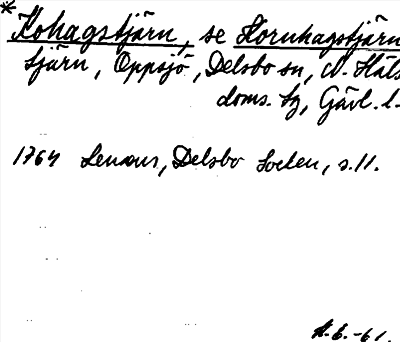 * Kohagstjärn, se Hornhagstjärn
tjärn, Oppsjö, Delsbo sn, N. Häls
doms. sg, Gävl. l.
1764 Lenæus, Delsbo Socken, s. 11.
A.B.-61.